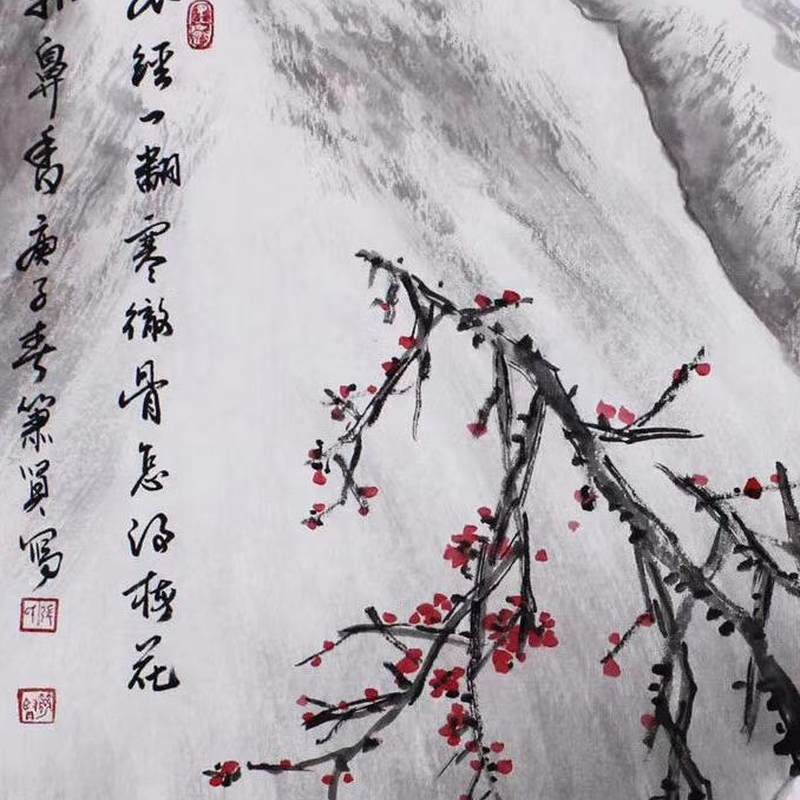 不經一翻寒徹骨怎得梅花
撲鼻香庚子春簫賢寫